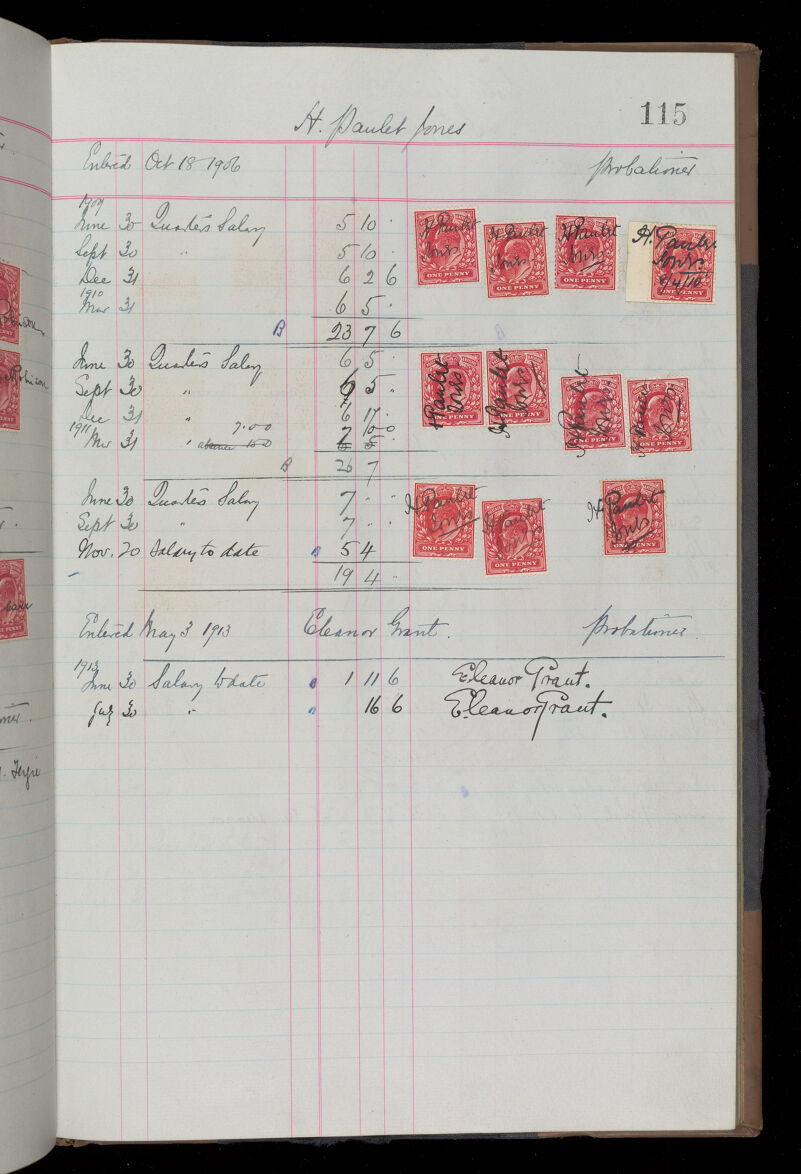 115
H. Paulet Jones
Entered Oct 18 1906 Probationer
1909
June 30 Quarter's Salary 5 10 .
Sept 30 " 5 10 .
Dec 31 6 2 6
1910
Mar 31 6 5 .
B 23 7 6
H Paulet Jones
H Paulet Jones
H Paulet Jones
H. Paulet Jones 8/4/10
ONE PENNY
ONE PENNY
ONE PENNY
ONE PENNY
June 30 Quarter's Salary 6 5 .
Sept 30 " 6 5 .
Dec 31 " 6 17 .
1911 7.0.0 7 0 0
Mar 31 "
B 26 7
H Paulet Jones
H Paulet Jones
H Paulet Jones
H Paulet Jones
ONE PENNY
ONE PENNY
ONE PENNY
ONE PENNY
June 30 Quarter's Salary 7 . .
Sept 30 " 7 . .
Nov. 20 Salary to date B 5 4
19 4 .
H Paulet Jones
H Paulet Jones
H Paulet Jones
ONE PENNY
ONE PENNY
ONE PENNY
Entered May 3 1913 Eleanor Grant. Probationer.
1913
June 30 Salary to date 1 11 6 Eleanor Grant.
July 30 " 16 6 Eleanor Grant.